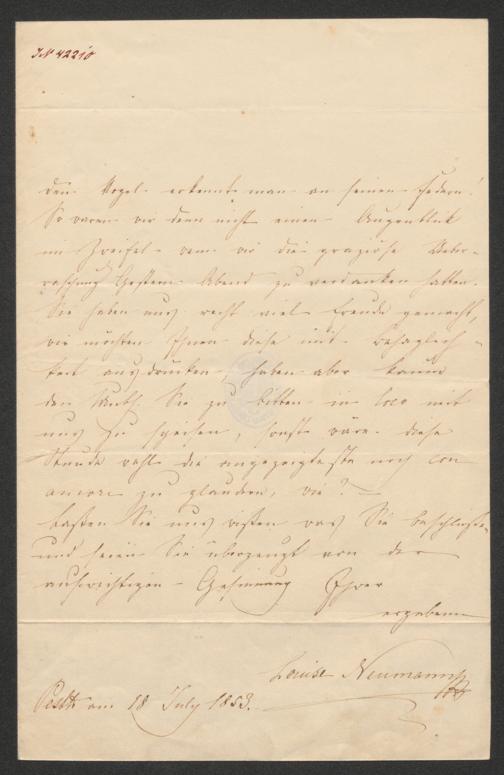 IN 42210
Den Vogel erkennt man an seinen Federn!
So waren wir denn nicht einen Augenblick
im Zweifel wem wir die graziöse Ueber-
raschung Gestern Abend zu verdanken hatten.
Sie haben uns recht viel Freude gemacht,
wir möchten Ihnen diese mit Behaglich-
keit ausdrücken, haben aber kaum
den Muth Sie zu bitten in loco mit
uns zu speisen, sonst wäre diese
Stunde wohl die angezeigteste noch con
amore zu plaudern, wie? –
Laßen Sie uns wißen was Sie beschließen
und seien Sie überzeugt von der
aufrichtigen Gesinnung Ihrer
ergebenen
Louise Neumann
Pesth am 18 July 1853.